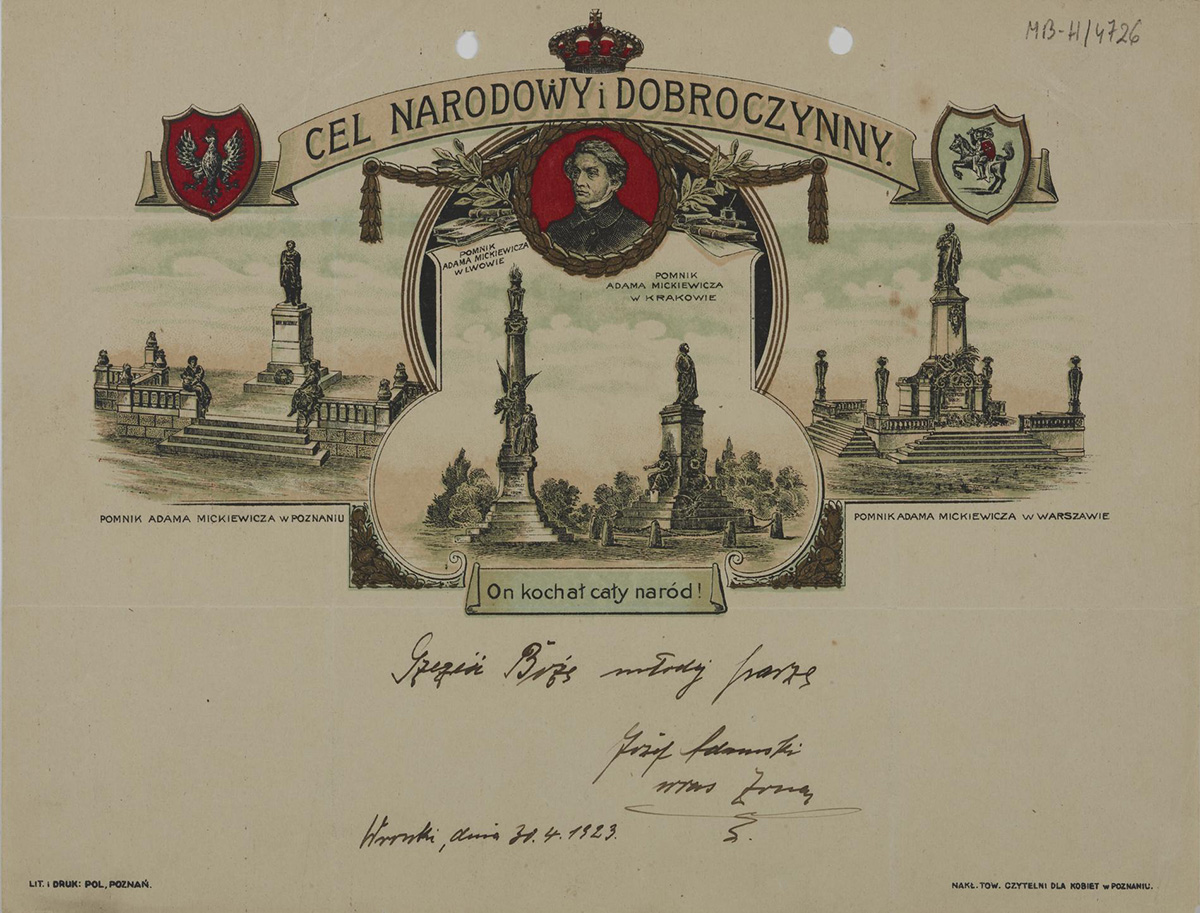 MB-H/4726
CEL NARODOWY i DOBROCZYNNY.
POMNIK
ADAMA MICKIEWICZA
W LWOWIE
POMNIK
ADAMA MICKIEWICZA
W KRAKOWIE
POMNIK ADAMA MICKIEWICZA W POZNANIU
POMNIK ADAMA MICKIEWICZA W WARSZAWIE
On kochał cały naród!
Boże młodej parze
Józef Adamski
wraz żoną
Wronki, dnia 30.4.1923.
LIT. i DRUK: POL, POZNAŃ.
NAKŁ. TOW. CZYTELNI DLA KOBIET W POZNANIU.